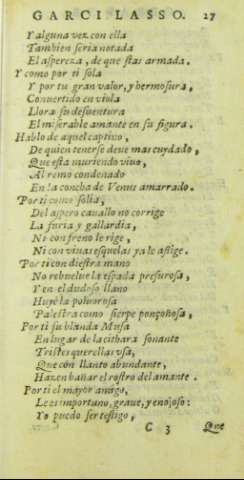 GARCI LASSO. 27
Y alguna vez con ella
Tambien seria notada
El aspereza, de que estas armada.
Y como por ti sola
Y por tu gran valor, y hermosura,
Conuertido en viola
Llora su desuentura
El miserable amante en su figura.
Hablo de aquel captiuo,
De quien tenerse deue mas cuydado,
Que esta muriendo viuo,
Al remo condenado
En la concha de Venus amarrado.
Por ti como solia,
Del aspero cauallo no corrige
La furia y gallardia,
Ni con freno le rige,
Ni con viuas espuelas ya le aflige.
Por ti con diestra mano
No rebuelue la espada presurosa,
Y en el dudoso llano
Huye la poluorosa
Palestra como sierpe ponçoñosa,
Por ti su blanda Musa
En lugar de la cithara sonante
Tristes querellas vsa,
Que con llanto abundante,
Hazen bañar el rostro del amante.
Por ti el mayor amigo,
Le es importuno, graue, y enojoso:
Yo puedo ser testigo,
C 3 Que